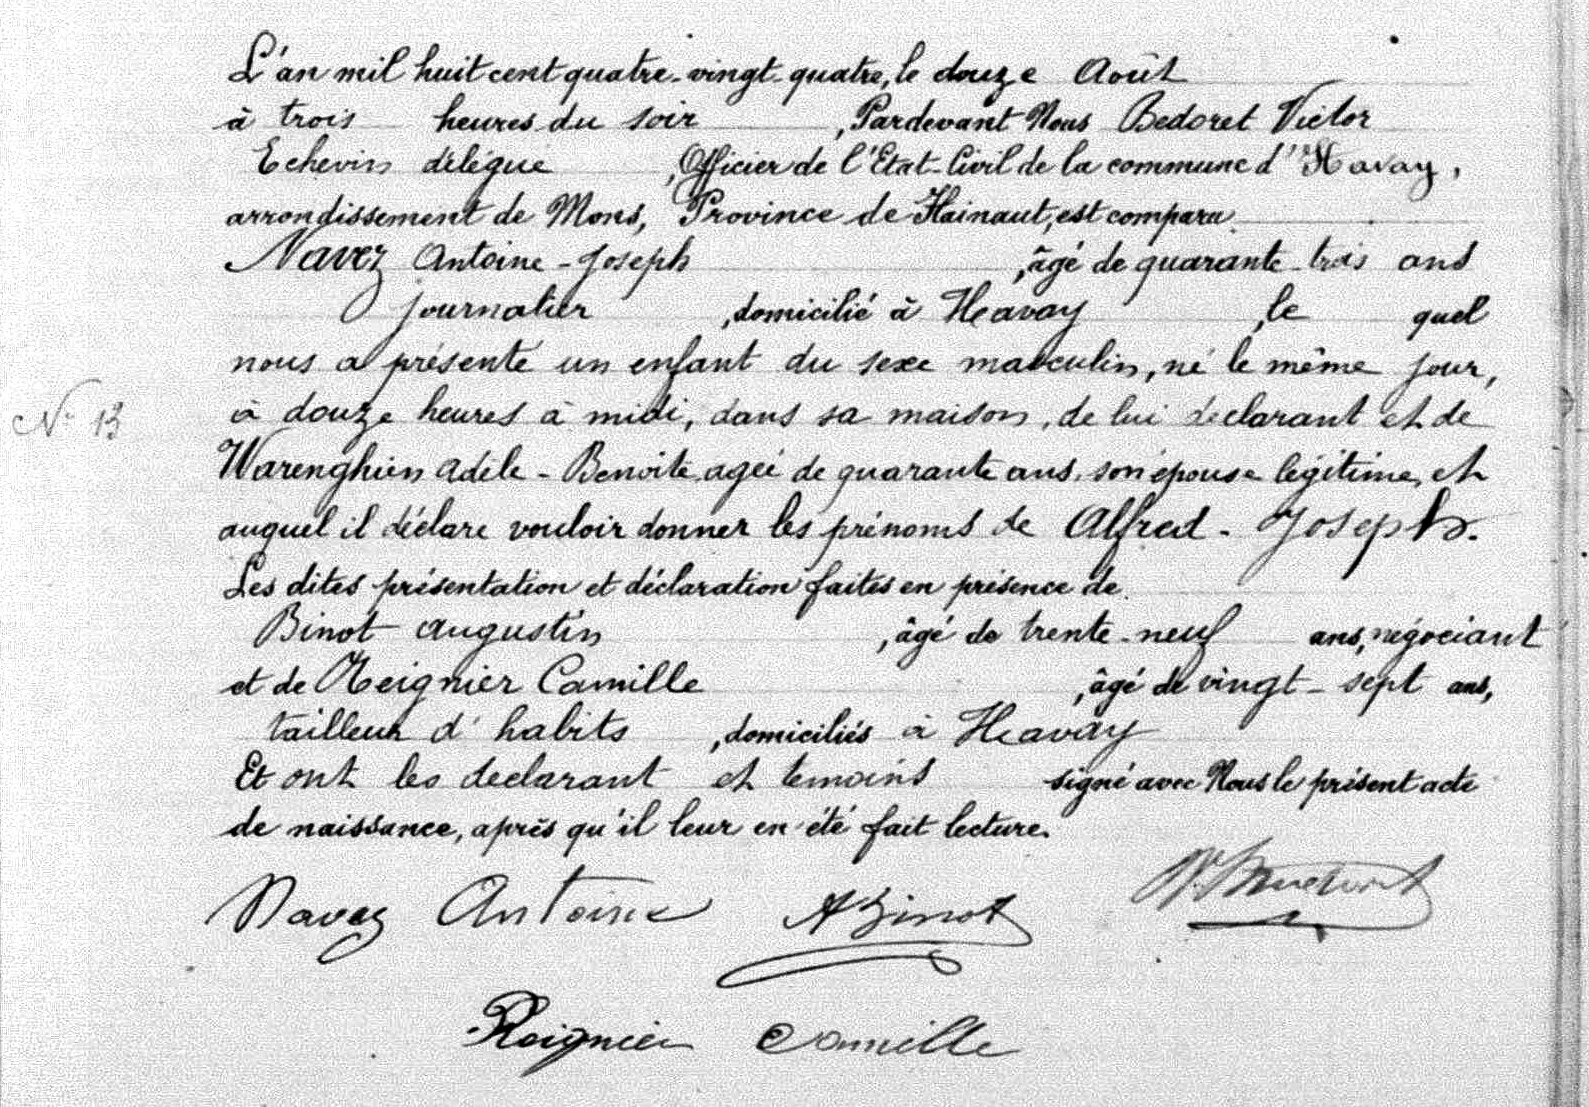 L'an mil huit cent quatre-vingt-quatre, le douze Août
à trois heures du soir, Pardevant Nous Bedoret Victor
Echevin délégué, Officier de l'Etat-Civil de la commune d'Havay,
arrondissement de Mons, Province de Hainaut, est comparu
Navez Antoine-Joseph, âgé de quarante-trois ans
journalier, domicilié à Havay, le quel
nous a présenté un enfant du sexe masculin, né le même jour,
N° 13
à douze heures à midi, dans sa maison, de lui declarant et de
Warenghien Adèle-Benoite agée de quarante ans, son épouse légitime, et
auquel il déclare vouloir donner les prénoms de Alfred-Joseph.
Les dites présentation et déclaration faites en présence de
Binot Augustin, âgé de trente-neuf ans, négociant
et de Reignier Camille, âgé de vingt-sept ans,
tailleur d'habits, domiciliés à Havay
Et ont les declarant et temoins signé avec Nous le présent acte
de naissance, après qu'il leur en été fait lecture.
Navez Antoine A Binot
Reignier Camille